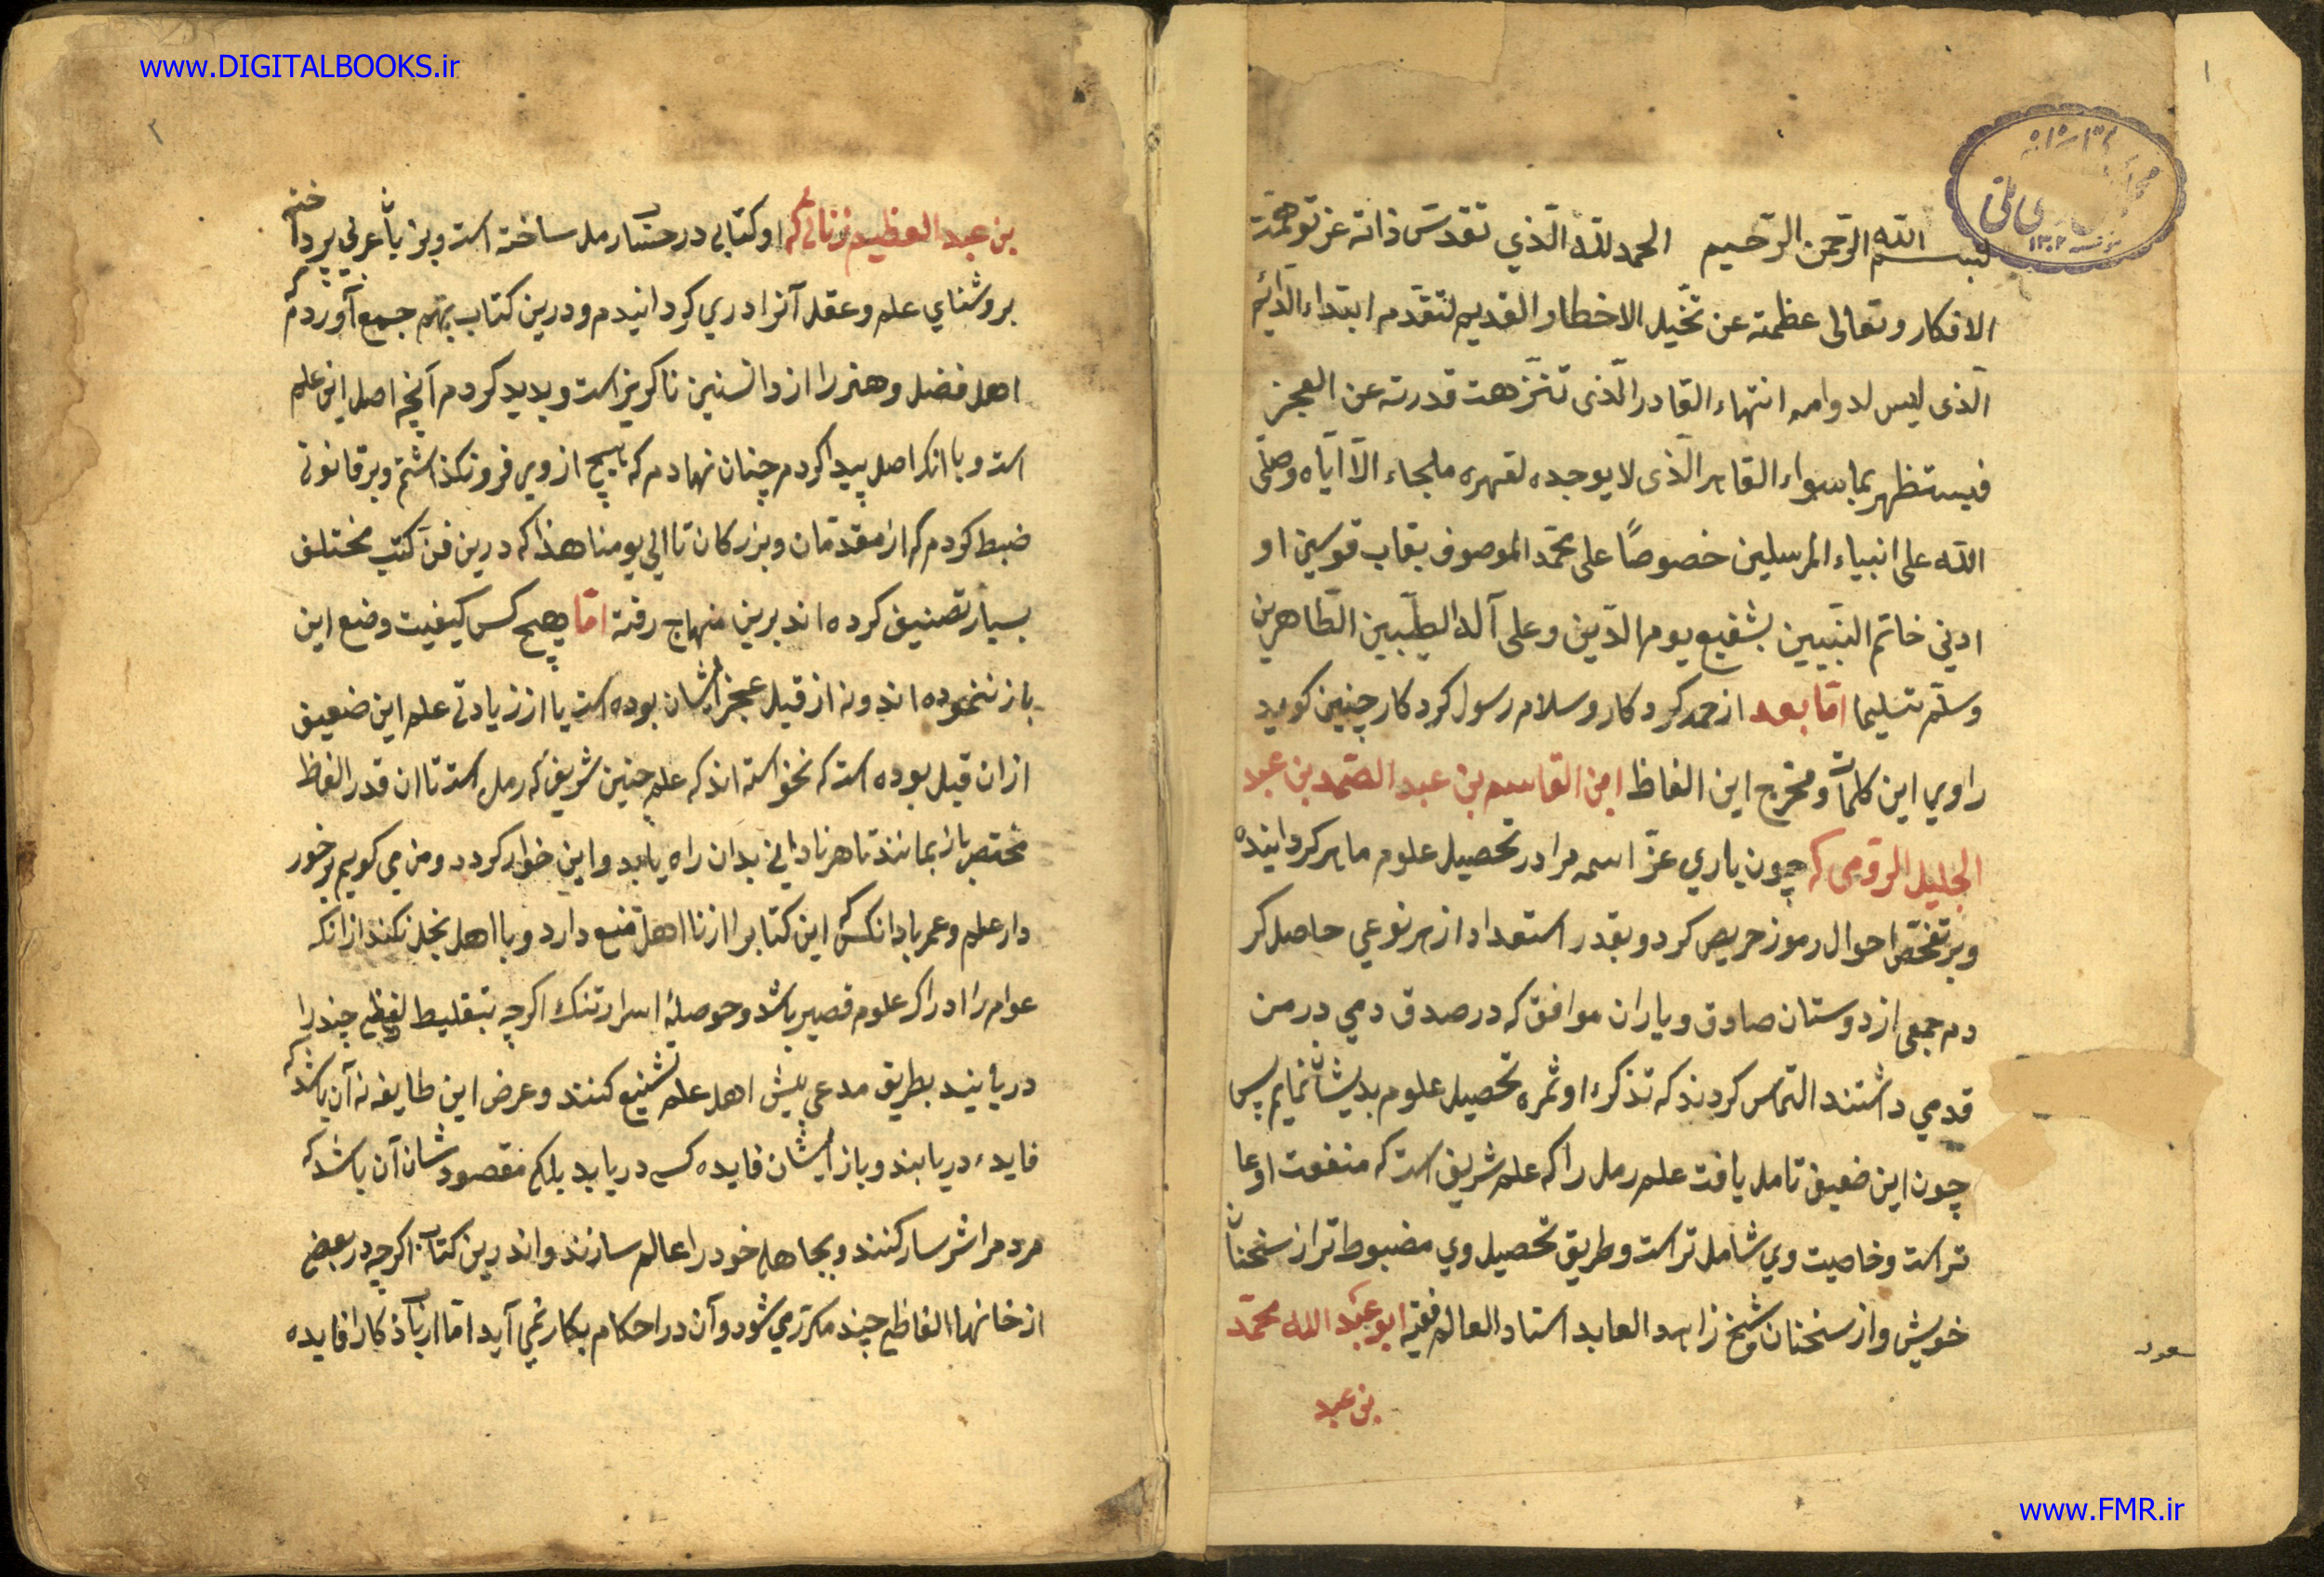 www.DIGITALBOOKS.ir
۱
بسم الله الرحمن الرحیم الحمد لله الّذي تقدسّ ذاته عن توهّمة
الافکار وتعالی عظمته عن تخیل الاخطار القدیم لتقدّمه ابتداء الدائم
الّذی لیس لدوامه انتهاء القادر الّذی تنزهت قدرته عن العجز
فیستظهر بماسواء القاهر الّذی لا یوجده لقهره ملجاء الّا ایّاه وصلّی
الله علی انبیاء المرسلین خصوصاً علی محمّد الموصوف بقاب قوسین او
ادني خاتم النبّیین بشفیع یوم الدّین وعلی آله الطیّبین الطّاهرین
وسلّم تسلیما امّا بعد از حمد کردکار وسلام رسول کردکار چنین کوید
راوي این کلمات ومخرج این الفاظ ابن القاسم بن عبد الصّمد بن عبد
الجلیل الرقومی که چون یاري عزّ اسمه مرا در تحصیل علوم ماهر کردانیده
وبر تفحّص احوال رموز حریص کرد وبقدر استعداد از هر نوعي حاصل کر
دم جمعی از دوستان صادق ویاران موافق که در صدق دمي در من
قدمي داشتند التماس کردند که تذکرۀ او ثمره تحصیل علوم بدیشان نمایم پس
چون این ضعیف تامل یافت علم رمل را که علم شریف است که منفعت او عا
تر است وخاصیت وي شامل تر است وطریق تحصیل وي مضبوط تر از سخنان
خویش واز سخنان شیخ زاهد العابد استاد العالم فقیه ابو عبد الله محمّد
بن عبد
سعود
۲
بن عبد العظیم زناتي که او کتابي در حساب رمل ساخته است وبزبان عربي پرداخته
بروشناي علم وعقل آنرا دري کردانیدم ودرین کتاب بهم جمع آوردم که
اهل فضل وهنر را از دانستنین ناکریز است وپدید کردم آنچه اصل این علم
است وبا انکه اصل پیدا کردم چنان نهادم که هیچ از وي فرو نکذاشتم وبر قانونی
ضبط کردم که از مقدّمان وبزرکان تا الي یومنا هذا که درین فنّ کتب مختلف
بسیار تصنیف کرده اند برین منهاج رفته امّا هیچ کس کیفیت وضع این
باز ننموده اند ونه از قبل عجز ایشان بوده است یا از زیادتی علم این ضعیف
ازان قبل بوده است که نخواسته اند که علم چنین شریف که رمل است تا ان قدر الفاظ
مختصر باز بمانند تا هر نادانی بدان راه یابد واین خوار کردد ومن مي کویم برخور
دار علم وعمر باد انکس که این کتاب را از نا اهل منع دارد وبا اهل بخل نکند از انکه
عوام را ادراک علوم قصیر باشد وحوصلۀ اسرار تنک اکرچه بتقلیط لفظي چند را
دریابند بطریق مدعي پیش اهل علم تشنیع کنند وعرض این طایفه نه آن باشد که
فایدۀ دریابند وباز ایشان فایده کسی دریابد بلکه مقصودشان آن باشد که
مردم را شرسار کنند وبجاهلي خود را عالم سازند واندرین کتاب اکرچه در بعضي
از خانها الفاظي چند مکرّر مي شود وآن در احکام بکار نمي آید امّا ارباب ذکار را فایده
www.FMR.ir